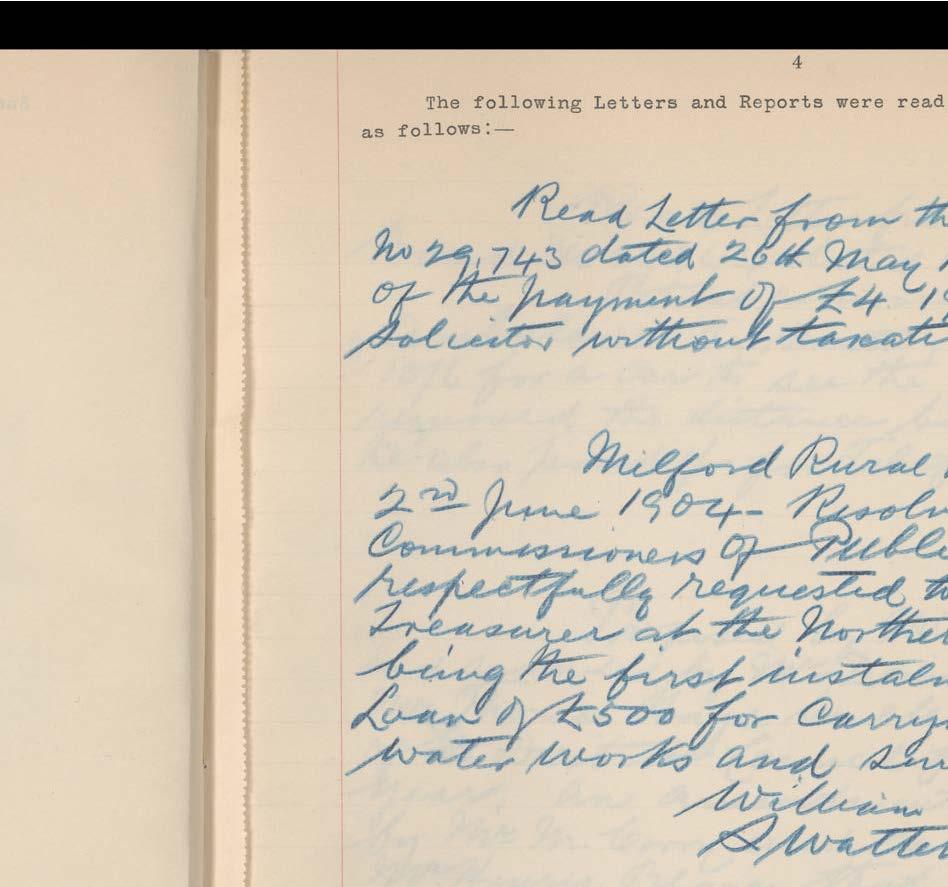 4
The following Letters and Reports were read
as follows:—
Read Letter from th
No 29,743 dated 26th May 1
of the payment of £4 " 1
Solicitor without taxati
Milford Rural
2nd June 1904 - Resolv
Commissioners of Public
respectfully requested to
Treasurer at the Norther
being the first instalm
Loan of £500 for Carry
water works and sew
William
S Watter